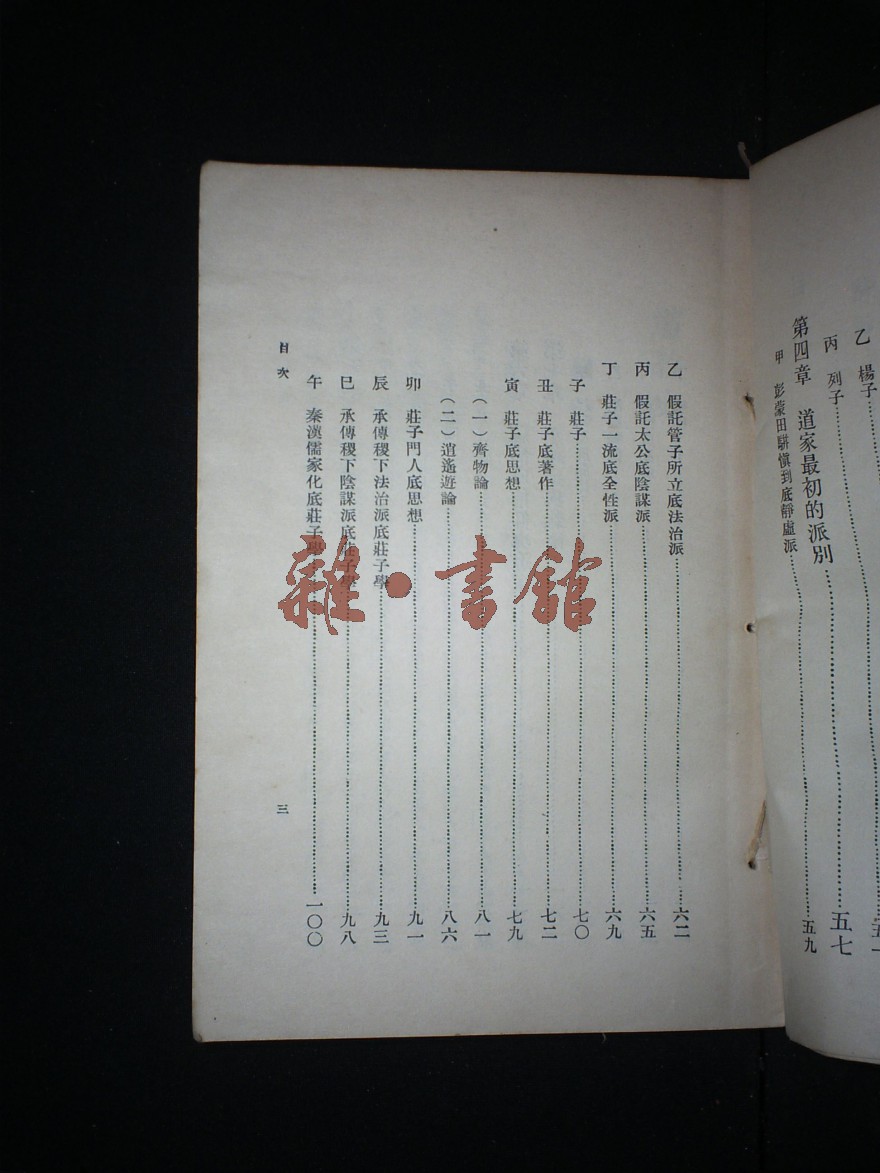 乙 楊子……五一
丙 列子
第四章 道家最初的派別……五七
甲 彭蒙田駢愼到底靜虛派……五九
乙 假託管子所立底法治派……六二
丙 假託太公底陰謀派……六五
丁 莊子一流底全性派……六九
子 莊子……七〇
丑 莊子底著作……七二
寅 莊子底思想……七九
（一）齊物論……八一
（二）逍遙遊論……八六
卯 莊子門人底思想……九一
辰 承傳稷下法治派底莊子學……九三
巳 承傳稷下陰謀派底莊子學……九八
午 秦漢儒家化底莊子學……一〇〇
目次
三
雜·書館